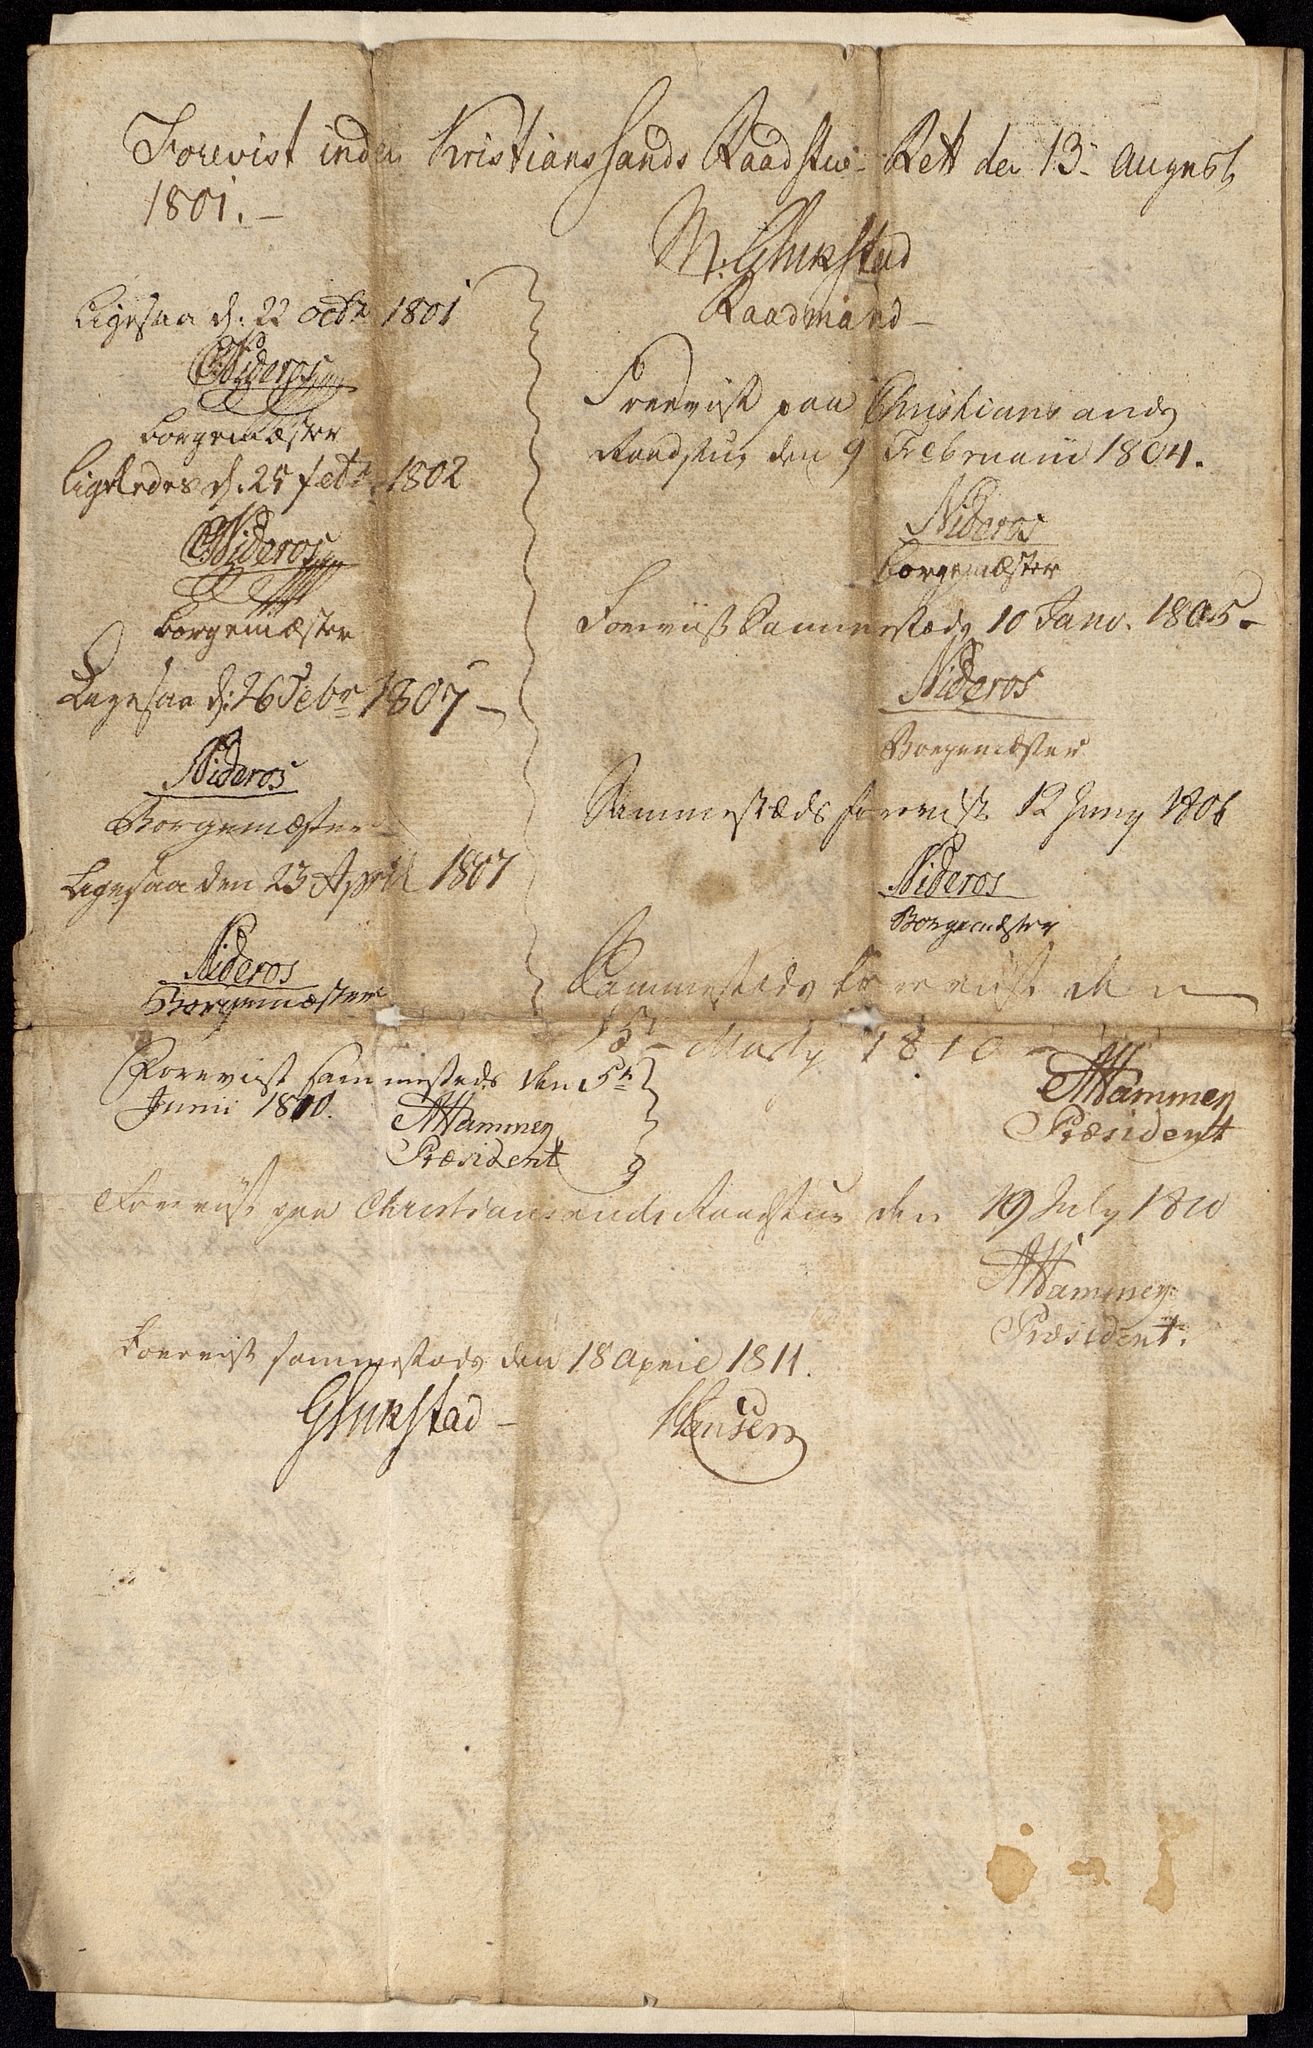 Forevist inden Kristianssands Raadstue Rett den 13 August
1801. –
Glukstad
Raadmand –
Ligesaa d: 22 octr 1801
Nideros
borgemæster
Ligeledes d: 25 febr 1802
Nideros
borgemæster
Ligesaa d: 26 Febr 1807 –
Nideros
Borgemæster
Ligesaa den 23 April 1807
Nideros
Borgemæster
Foreviist paa Christiansands
Raadstue den 9 Februarii 1804.
Nideros
borgemæster
Foreviist Sammestæds 10 Janv. 1805 –
Nideros
Borgemæster
Sammestæds forevist 12 Juny 1806
Nideros
Borgemæster
Sammesteds foreviist den
15 – Marty 1810 –
AHammer
Præsident
Foreviist sammesteds den 5t
Junii 1810.
AHammer
Præsident
Foreviist paa Christiansands Raadstue den 19 July 1810
AHammer
Præsident.
Forevist sammestæds den 18 April 1811.
Glukstad –
Hansen